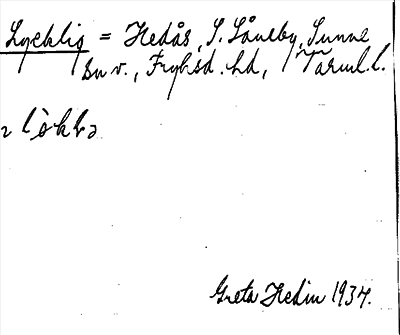 Lycklig = Hedås, S. Låneby, Sunne
sn v., Fryksd. hd, Värml. l.
Greta Hedin 1934.